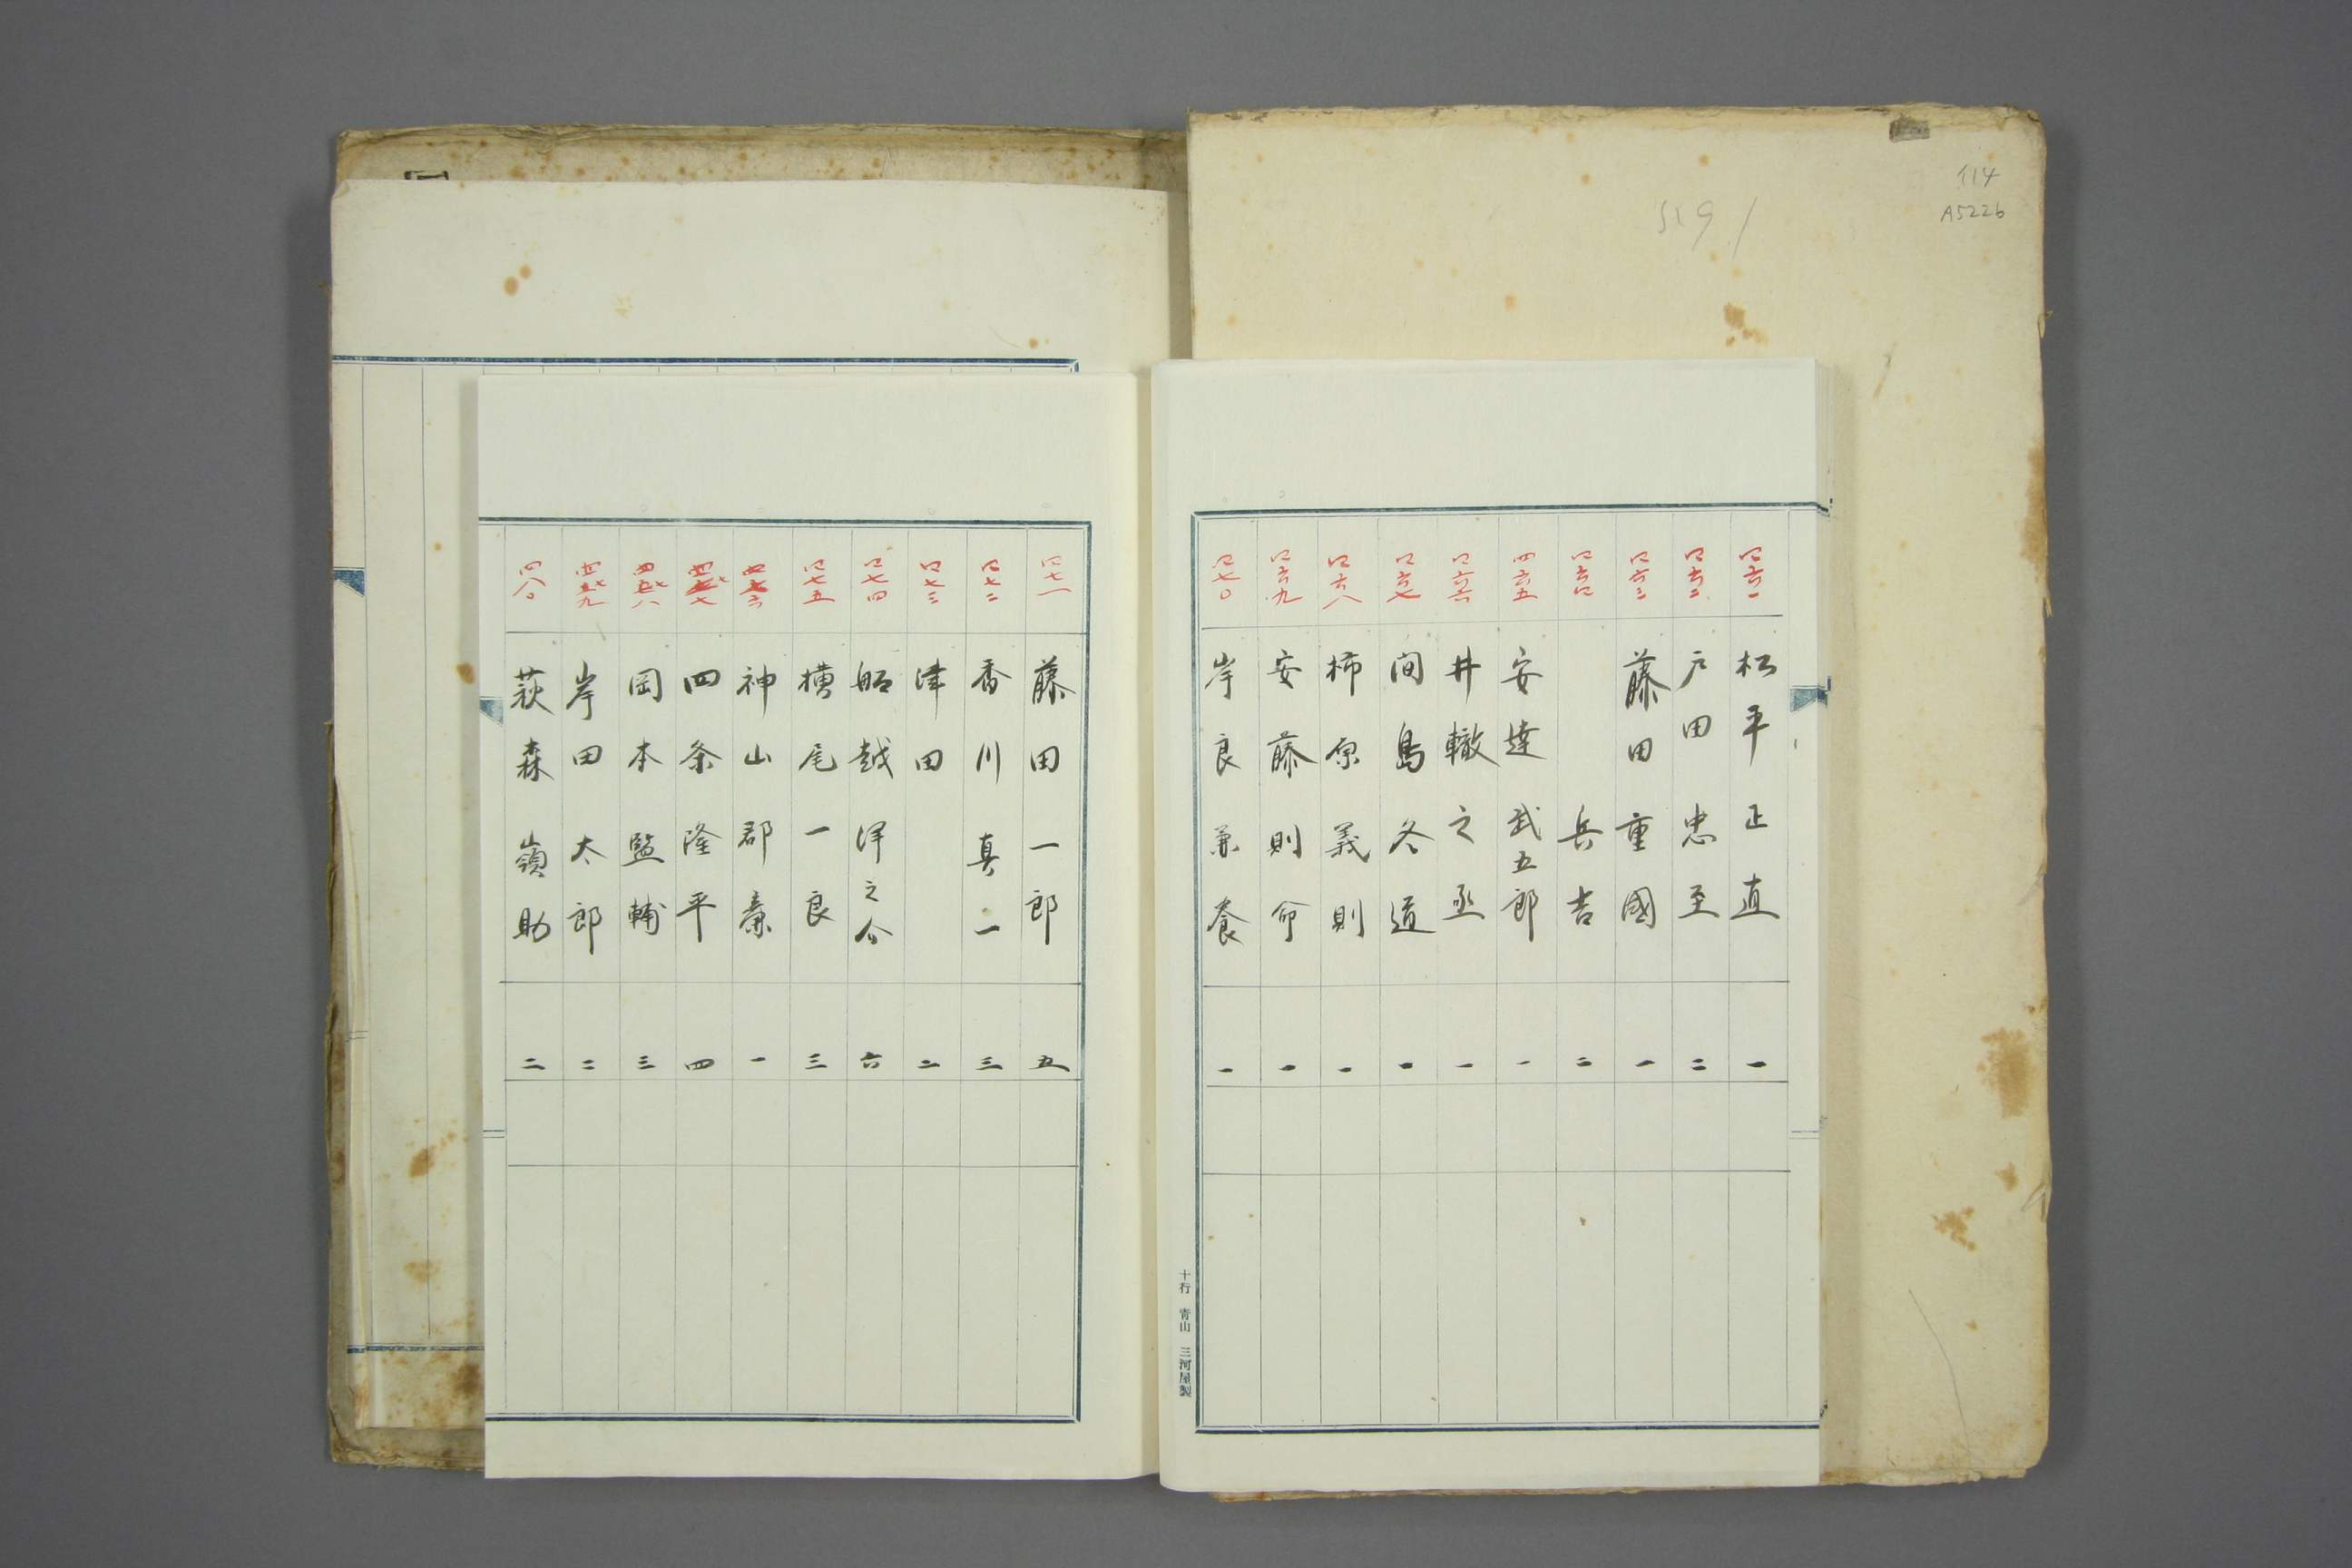 114
A5226
四六一 松平正直 一
四六二 戸田忠至 二
四六三 藤田重國 一
四六四 兵吉 二
四六五 安達武五郎 一
四六六 井轍之丞 一
四六七 間島冬道 一
四六八 柿原義則 一
四六九 安藤則命 一
四七〇 岸良兼養 一
十行 青山 三河屋製
四七一 藤田一郎 五
四七二 香川真一 三
四七三 津田 二
四七四 船越洋之介 六
四七五 槽尾一良 三
四七六 神山郡廉 一
四七七 四条隆平 四
四七八 岡本監輔 三
四七九 岸田太郎 二
四八〇 萩森嶺助 二